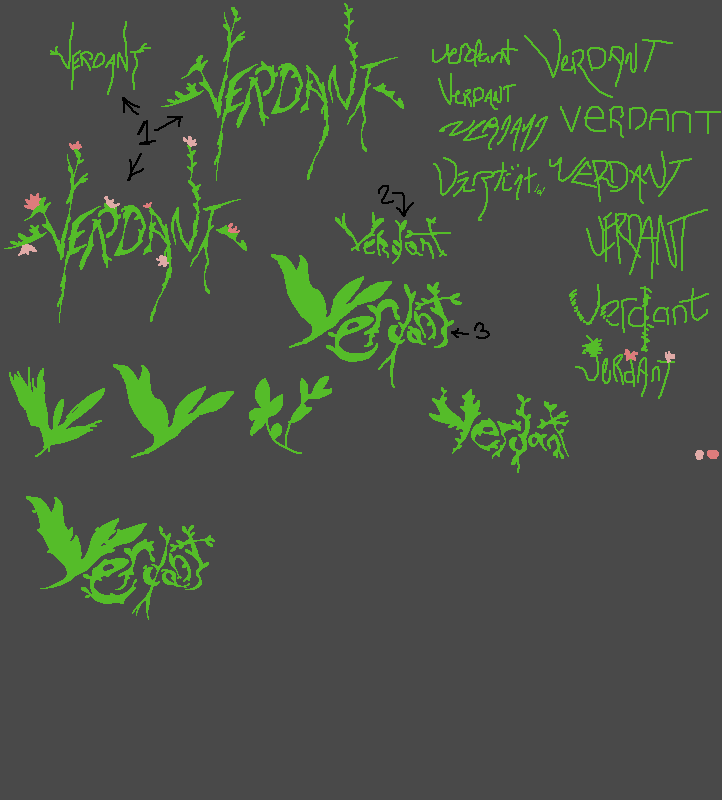 VERDANT
VERDANT
verdant
VERDANT
VERDANT
VERDANT
1
VERDANT
VERDANT
2
Verdant
VERDANT
VERDANT
Verdant
3
Verdant
Verdant